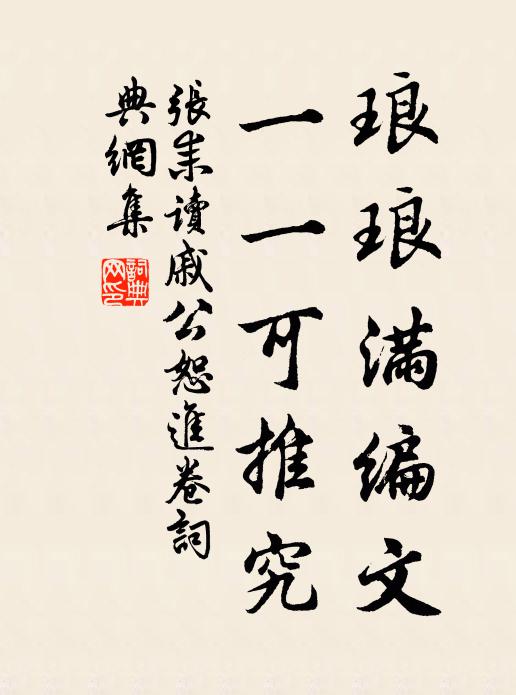 琅琅滿编文
一一可推究
張耒讀戚公恕進卷詞
典網集
詞典
网印